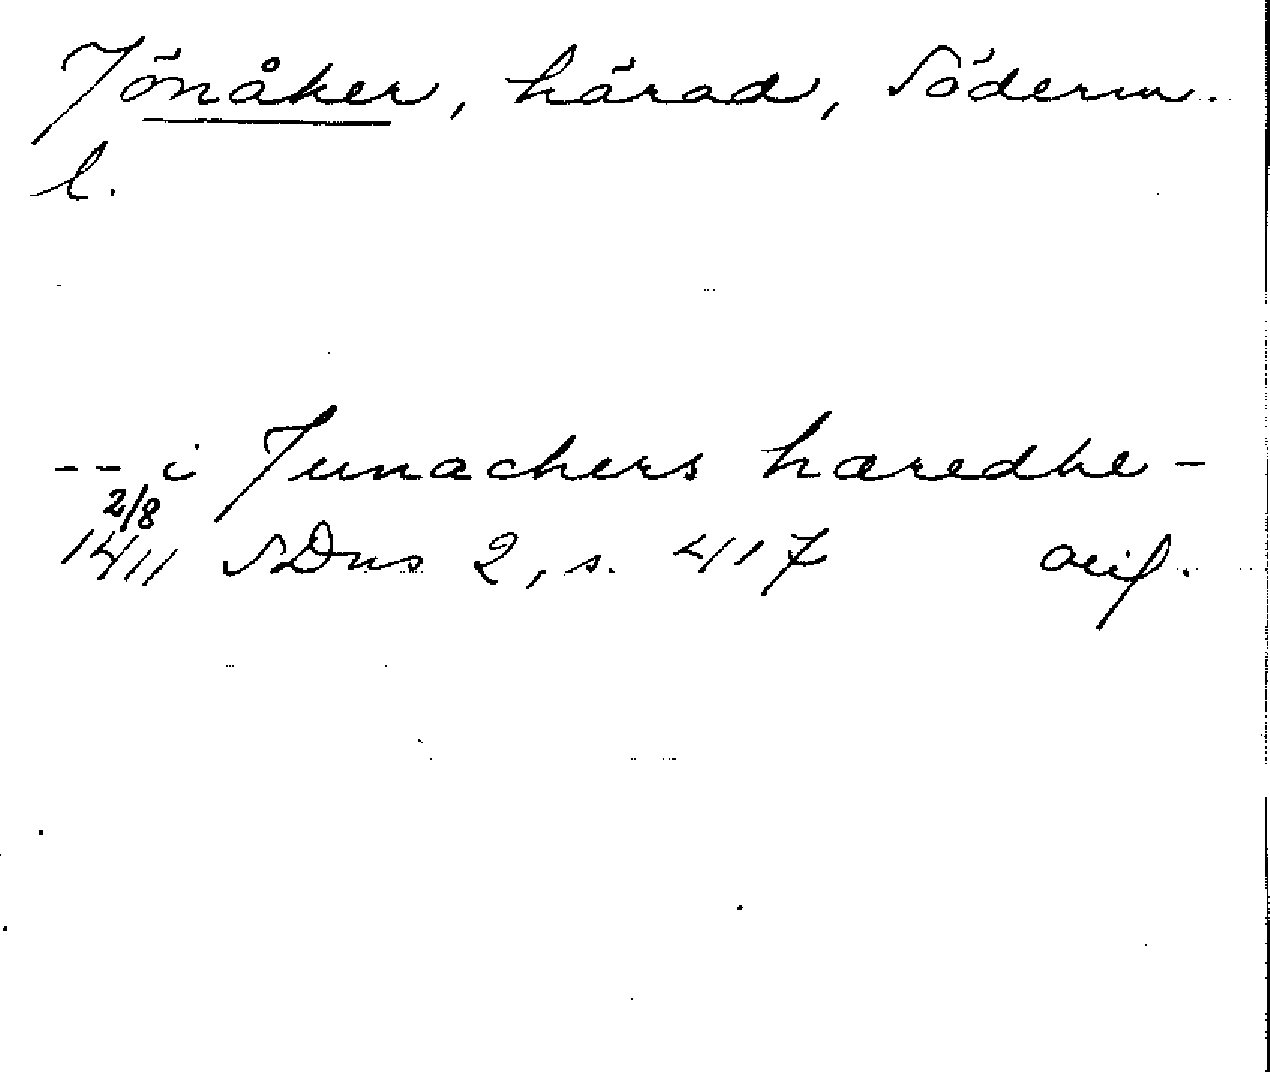 Jönåker, härad, Söderm.
l.
-- i Junachers hæredhe -
2/8
1411 SDns 2, s. 417 avif.